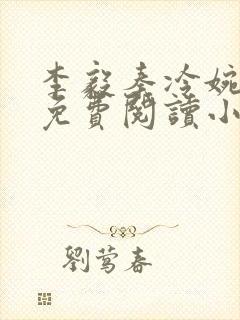 李毅秦冷婉
免費閱讀小
劉莺春